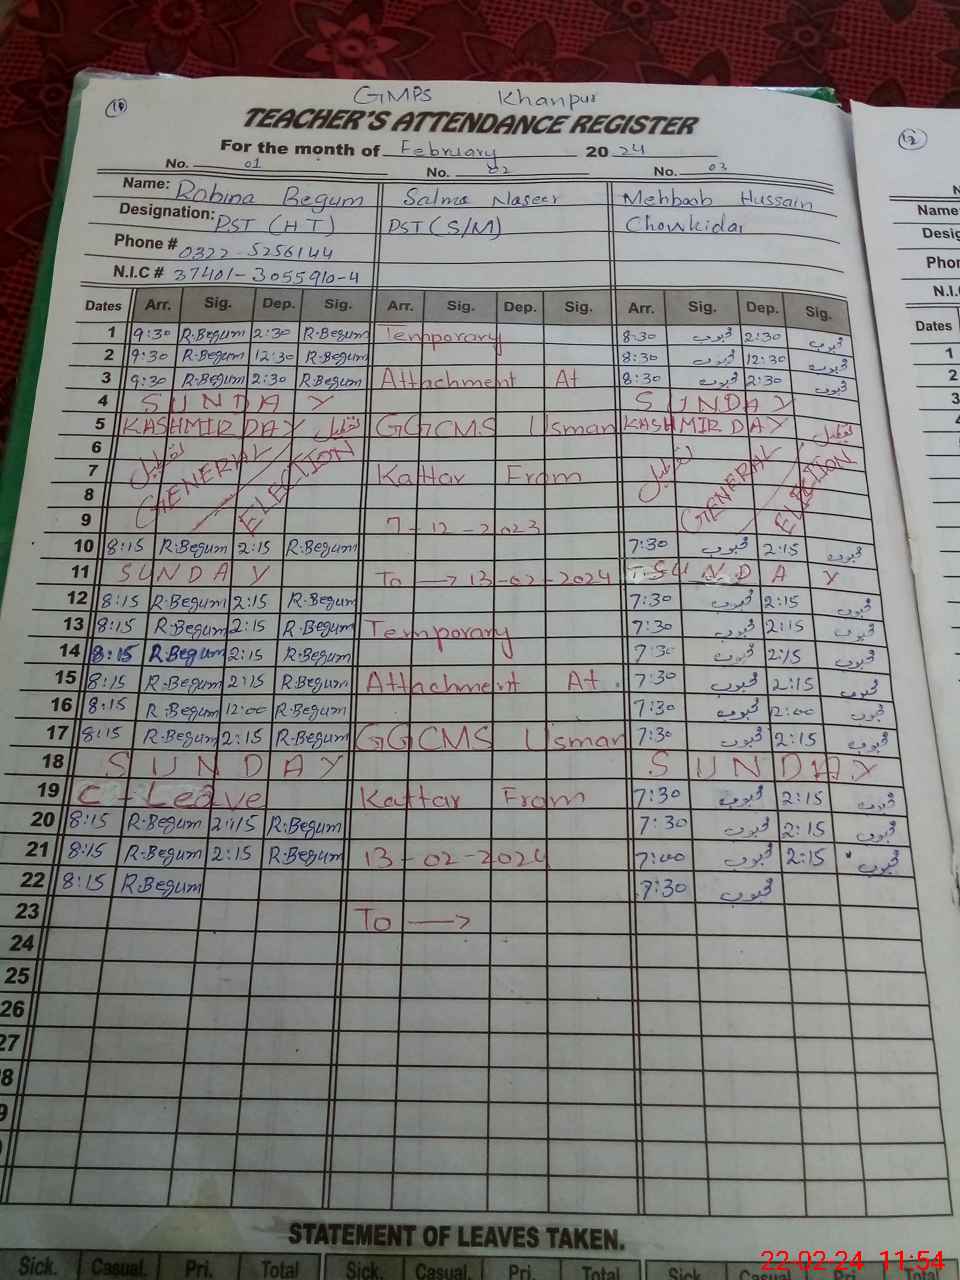 GMPS Khanpur
10
12
TEACHER'S ATTENDANCE REGISTER
For the month of February 2024
No. 01 No. 02 No. 03
Name: Robina Begum Salma Naseer Mehboob Hussain
Designation: PST (HT) PST (S/M) Chowkidar
Phone # 0322-5256144
N.I.C # 37401-3055910-4
Dates Arr. Sig. Dep. Sig. Arr. Sig. Dep. Sig. Arr. Sig. Dep. Sig.
1 9:30 R.Begum 2:30 R.Begum Temporary 8:30 محبوب 2:30 محبوب
2 9:30 R.Begum 12:30 R.Begum 8:30 محبوب 12:30 محبوب
3 9:30 R.Begum 2:30 R.Begum Attachment At 8:30 محبوب 2:30 محبوب
4 SUNDAY SUNDAY
5 KASHMIR DAY تعطیل GGCMS Usman KASHMIR DAY تعطیل
6 تعطیل GENERAL ELECTION تعطیل GENERAL ELECTION
7 Kattar From
8
9 7-12-2023
10 8:15 R.Begum 2:15 R.Begum 7:30 محبوب 2:15 محبوب
11 SUNDAY To → 13-02-2024 SUNDAY
12 8:15 R.Begum 2:15 R.Begum 7:30 محبوب 2:15 محبوب
13 8:15 R.Begum 2:15 R.Begum Temporary 7:30 محبوب 2:15 محبوب
14 8:15 R.Begum 2:15 R.Begum 7:30 محبوب 2:15 محبوب
15 8:15 R.Begum 2:15 R.Begum Attachment At 7:30 محبوب 2:15 محبوب
16 8:15 R.Begum 12:00 R.Begum 7:30 محبوب 12:00 محبوب
17 8:15 R.Begum 2:15 R.Begum GGCMS Usman 7:30 محبوب 2:15 محبوب
18 SUNDAY SUNDAY
19 C-Leave Kattar From 7:30 محبوب 2:15 محبوب
20 8:15 R.Begum 2:15 R.Begum 7:30 محبوب 2:15 محبوب
21 8:15 R.Begum 2:15 R.Begum 13-02-2024 7:00 محبوب 2:15 محبوب
22 8:15 R.Begum 7:30 محبوب
23 To →
24
25
26
27
8
9
STATEMENT OF LEAVES TAKEN.
Sick. Casual. Pri. Total Sick. Casual. Pri. Total Sick. Casual. Total
Name
Desig
Phon
N.I.C
Dates
1
2
3
4
5
6
7
8
9
10
11
22-02-24 11:54